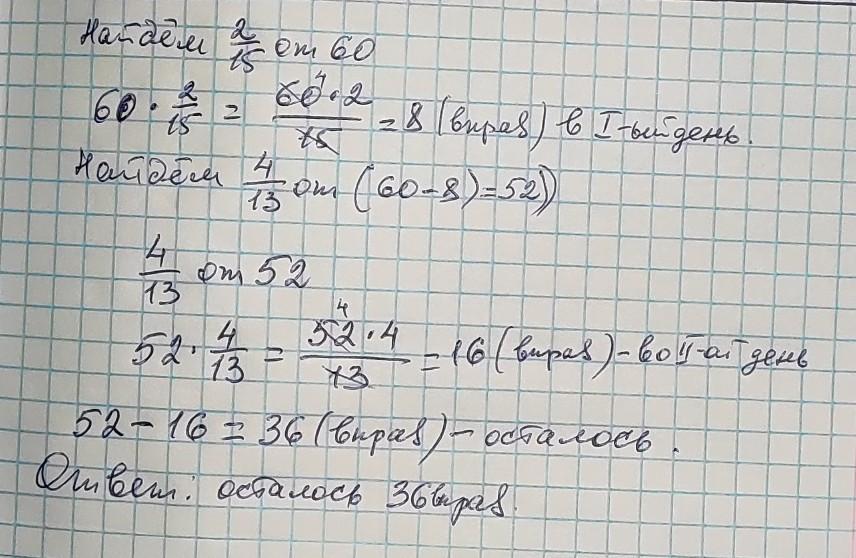 Найдём 2/15 от 60
60 · 2/15 = 60⁴ · 2 / 15 = 8 (вправ) в I-ый день.
Найдём 4/13 от (60-8)=52))
4/13 от 52
52 · 4/13 = 52⁴ · 4 / 13 = 16 (вправ) - во II-ой день
52 - 16 = 36 (вправ) - осталось.
Ответ: осталось 36 вправ.